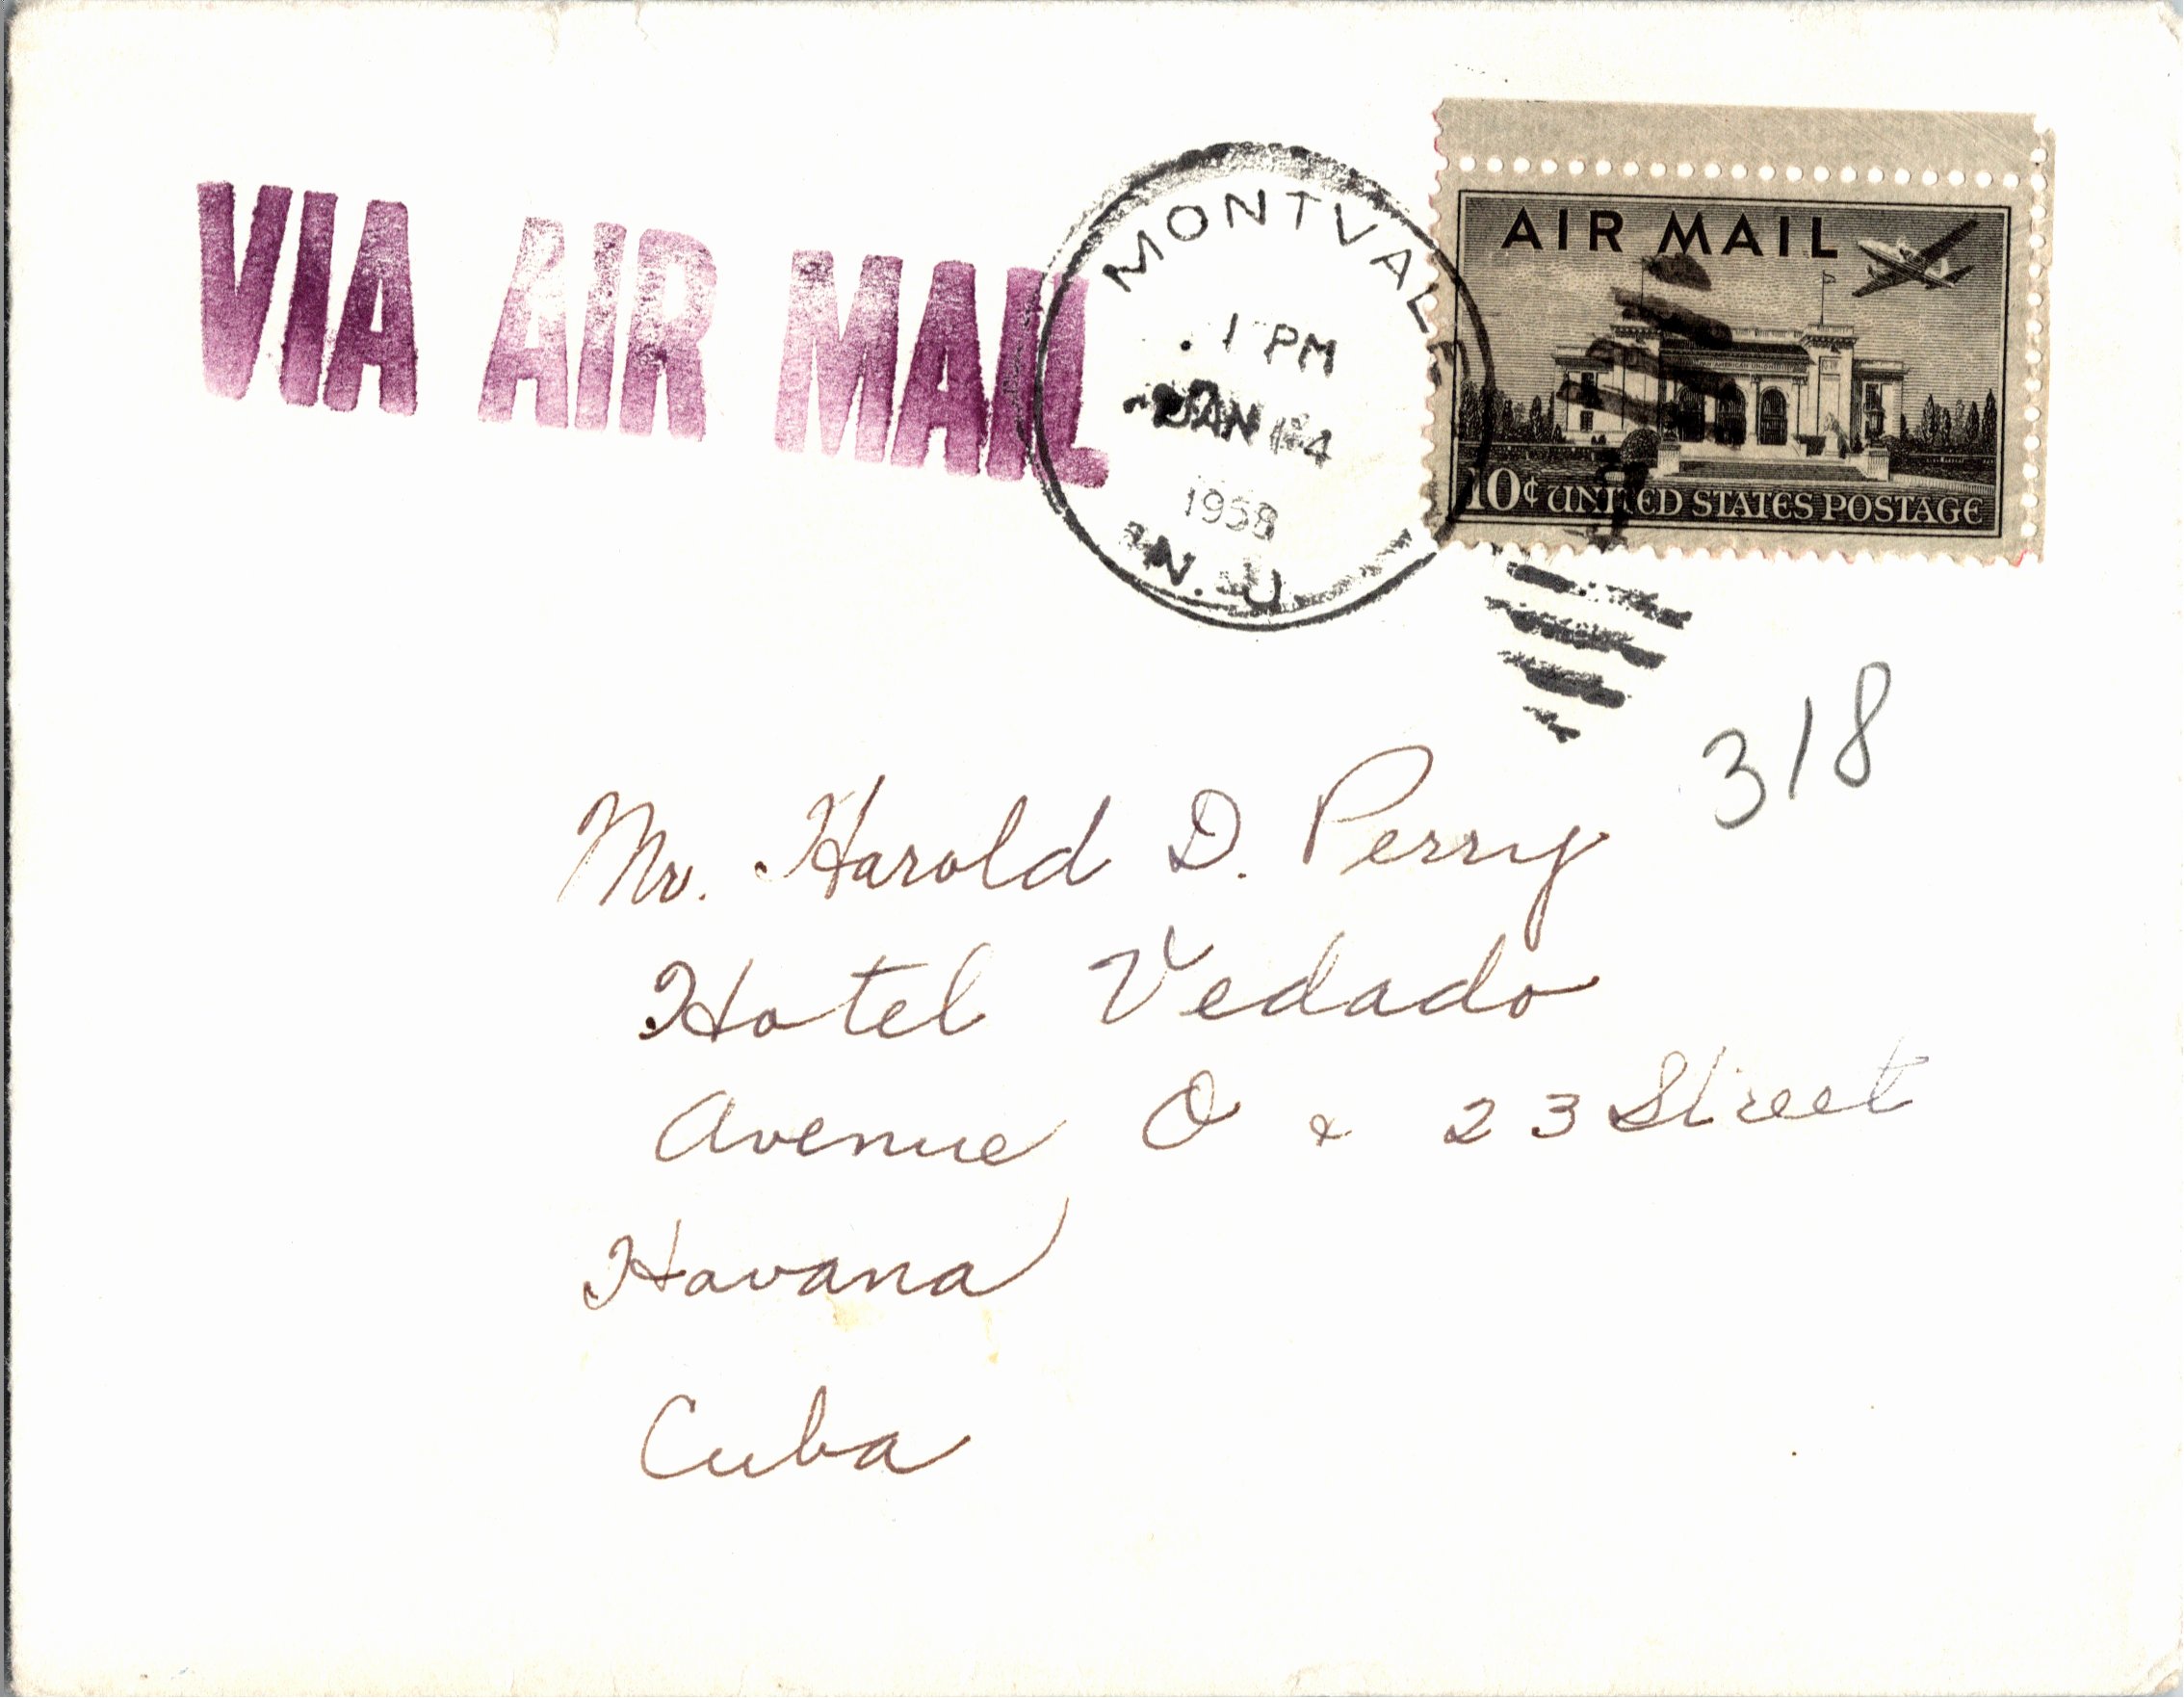 VIA AIR MAIL
MONTVALE
1 PM
JAN 14
1958
N. J.
AIR MAIL
10¢ UNITED STATES POSTAGE
318
Mr. Harold D. Perry
Hotel Vedado
Avenue O & 23 Street
Havana
Cuba